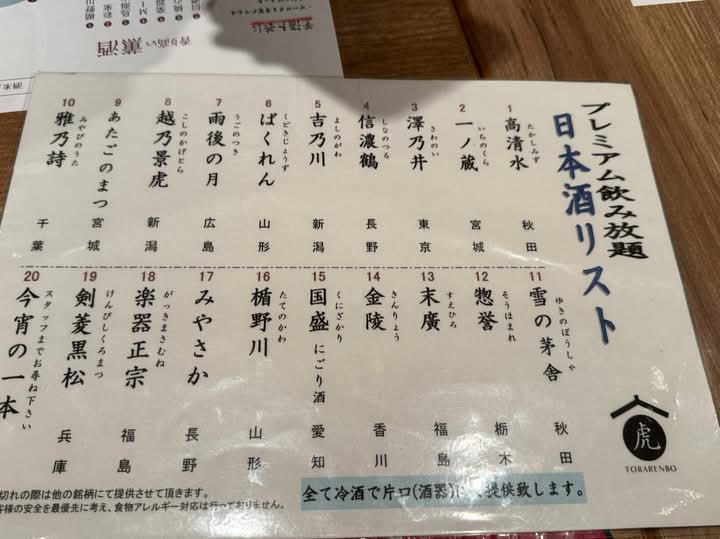 プレミアム飲み放題
日本酒リスト
1 高清水 たかしみず 秋田
2 一ノ蔵 いちのくら 宮城
3 澤乃井 さわのい 東京
4 信濃鶴 しなのつる 長野
5 吉乃川 よしのがわ 新潟
6 ばくれん くどきじょうず 山形
7 雨後の月 うごのつき 広島
8 越乃景虎 こしのかげとら 新潟
9 あたごのまつ 宮城
10 雅乃詩 みやびのうた 千葉
11 雪の茅舎 ゆきのぼうしゃ 秋田
12 惣誉 そうほまれ 栃木
13 末廣 すえひろ 福島
14 金陵 きんりょう 香川
15 国盛 にごり酒 くにざかり 愛知
16 楯野川 たてのかわ 山形
17 みやさか 長野
18 楽器正宗 がっきまさむね 福島
19 剣菱黒松 けんびしくろまつ 兵庫
20 今宵の一本 スタッフまでお尋ね下さい
虎
TORARENBO
全て冷酒で片口(酒器)に 提供致します。
切れの際は他の銘柄にて提供させて頂きます。
客様の安全を最優先に考え、食物アレルギー対応は行っておりません。
香り高い 薫酒